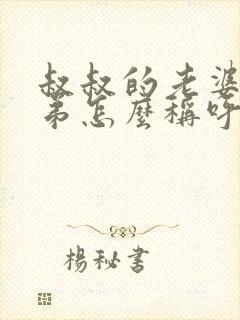 叔叔的老婆
弟怎麼稱呼
楊秘書